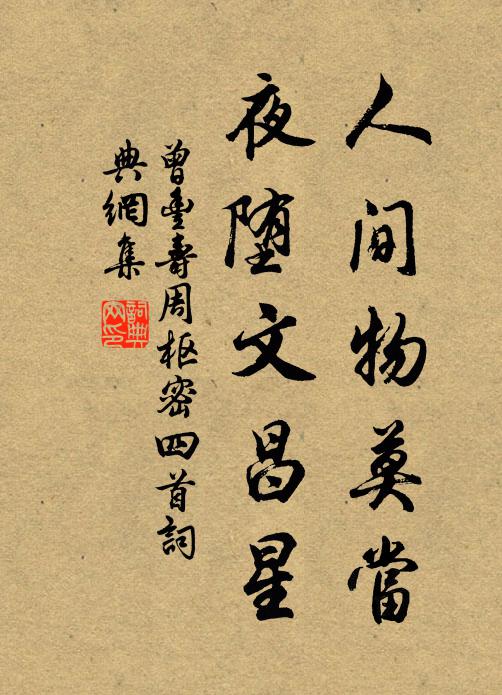 人間物莫當
夜堕文昌星
曾豐壽周枢密四首詞
典網集
詞典網印